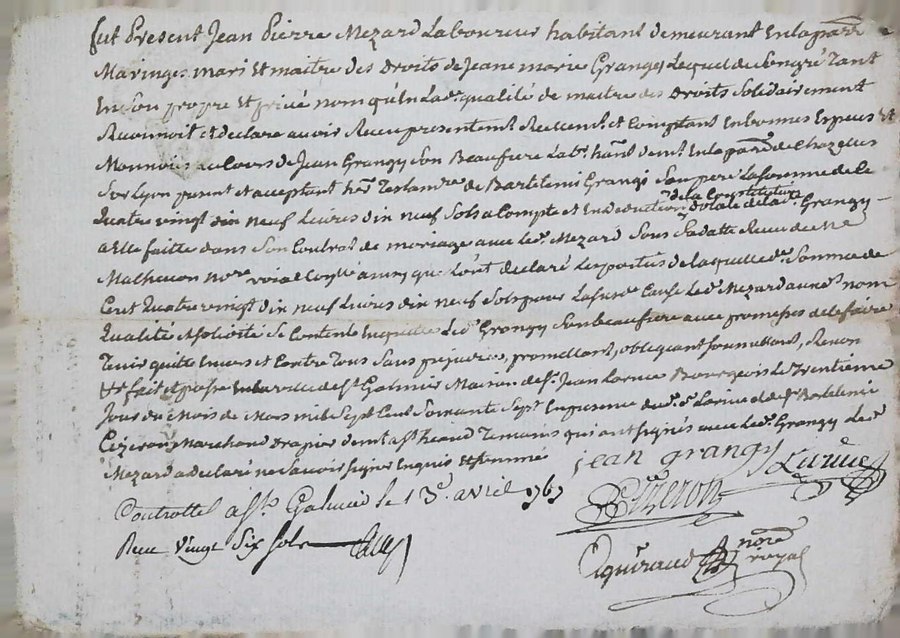 fut Present Jean Pierre Mezard Laboureur habitant demeurant en la parr.e
Maringes mari et maitre des droits de Jeane marie Grangy Lequel de son gré tant
En son propre et privé nom qu'en lad.e qualité de maitre des Droits Solidairement
Reconnoit et declare avoir Receu presentem.t et Comptant En bonnes Especes Et
Monnoies de Cours de Jean Grangy Son Beaufrere Lab.r hant dem.t En la parr.e de Chazelles
Sur Lyon present et acceptant her. Testam.re de Bartelemi Grangi Son pere La Somme de Ce
Quatre vingt dix neuf Livres dix neuf Sols a Compte et En deduction de la Constitution dotale de lad.e Grangy
a Elle faitte dans Son Contrat de mariage avec led. Mezard Sous Sa datte Receu de Me
Matheuon No.re roial que L'ont declaré Les parties de laquelle de Somme de
Cent Quatre vingt dix neuf Livres dix neuf Sols pour La Susd.e Cause Led. Mezard aux d. nom
Qualité et Solidité Se Contente En quitte Led. Grangy Son beaufrere avec promesses de le faire
Tenir quitte Envers et Contre Tous Sans prejudices, promettant, obligeant Soumettant, Renon
fait et passé En la ville de S.t Galmier Maison de S.r Jean Larue Bourgeois Le Trentieme
Jour du Mois de Mars mil Sept Cent Soixante Sept En presence dud. S.r Larue et de S.r Bartelemi
Cizeron Marchand drapier dem.t aud. S.t heand Temoins qui ont Signés avec Led. Grangy Led.
Mezard a declaré ne Savoir Signer Enquis et Sommé
jean grangy Larue
Cizeron
Controllé a S.t Galmier le 13e. avril 1767
Reçu Vingt Six Sols
Aguiraud no.re royal